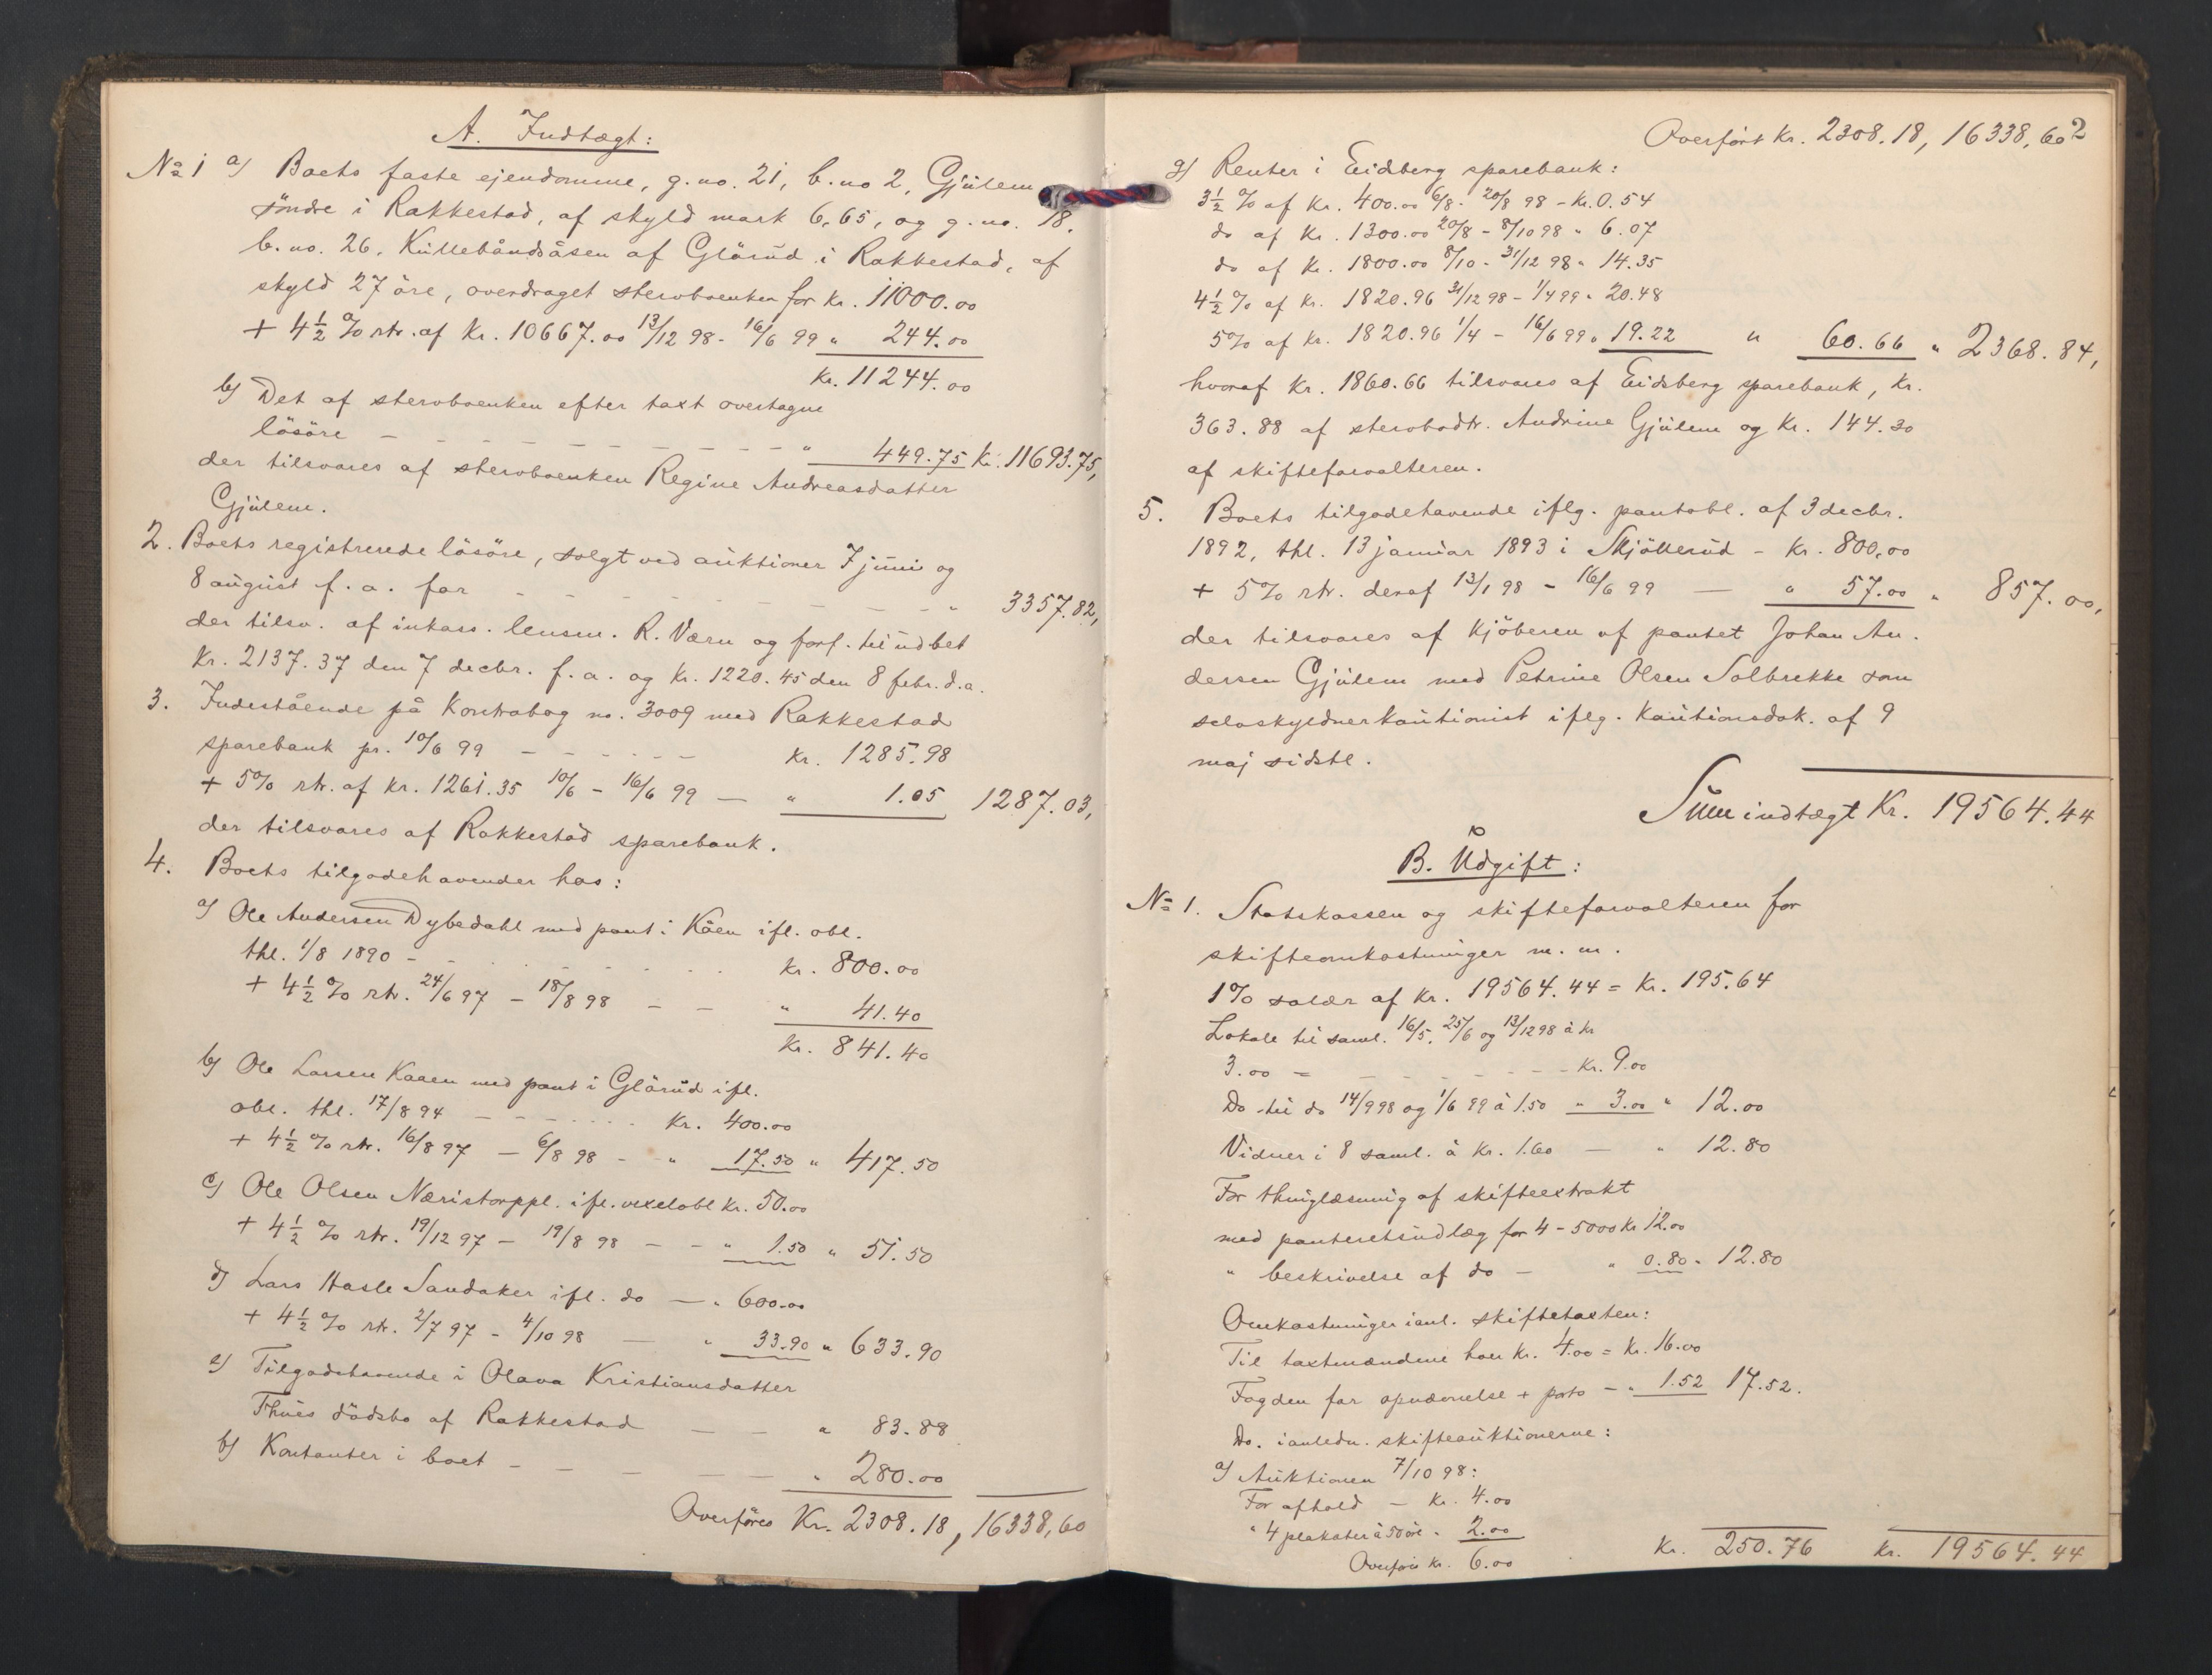 A. Indtægt:
No 1 a) Boets faste ejendomme, g. no. 21, b. no 2, Gjülem
söndre i Rakkestad, af skyld mark 6,65, og g. no. 18,
b. no. 26, Küllebåndsåsen af Glärüd i Rakkestad, af
skyld 27 öre, overdraget stervboenken for kr. 11000.00
+ 4½ % rtr. af Kr. 10667.00 13/12 98 - 16/6 99 " 244.00
Kr. 11244.00
b) Det af stervboenken efter taxt overtagne
lösöre - - - " 449.75 Kr. 11693.75,
der tilsvares af stervboenken Regine Andreasdatter
Gjülem.
2. Boets registrerede lösöre, solgt ved auktioner 7 jüni og
8 august f. a. for - - - " 3357.82,
der tilsv. af inkass. lensm. R.Værn og forf. til üdbet
Kr. 2137.37 den 7 decbr. f. a. og Kr. 1220.45 den 8 febr. d. a.
3. Indestående på Kontrabog no. 3009 med Rakkestad
sparebank pr. 10/6 99 - - - Kr. 1285.98
+ 5% rtr. af kr. 1261.35 10/6 - 16/6 99 - " 1.05 1287.03,
der tilsvares af Rakkestad sparebank.
4. Boets tilgodehavender hos:
a) Ole Andersen Dybedahl med pant i Kåen ifl. obl.
thl. 1/8 1890 - - - Kr. 800.00
+ 4½ % rtr. 24/6 97 - 18/8 98 - - " 41.40
Kr. 841.40
b) Ole Larsen Kaaen med pant i Glärüd ifl.
obl. thl. 17/8 94 - - - Kr. 400.00
+ 4½ % rtr. 16/8 97 - 6/8 98 - " 17.50 " 417.50
c) Ole Olsen Næristorppl. ifl. vexelobl kr. 50.00
+ 4½ % rtr. 19/12 97 - 19/8 98 - - " 1.50 " 51.50
d) Lars Hasle Sandaker ifl. do - " 600.00
+ 4½ % rtr. 2/7 97 - 4/10 98 - " 33.90 " 633.90
e) Tilgodehavende i Olava Kristiansdatter
Thues dödsbo af Rakkestad - - " 83.88
f) Kontanter i boet - - - " 280.00
Overföres Kr. 2308.18, 16338,60
2
Overfört Kr. 2308.18, 16338,60
g) Renter i Eidsberg sparebank:
3½ % af Kr. 400.00 6/8 - 20/8 98 - Kr. 0.54
do af Kr. 1300.00 20/8 - 8/10 98 " 6.07
do af Kr. 1800.00 8/10 - 31/12 98 " 14.35
4½ % af Kr. 1820.96 31/12 98 - 1/4 99 " 20.48
5% af Kr. 1820.96 1/4 - 16/6 99 " 19.22 " 60.66 " 2368.84,
hvoraf Kr. 1860.66 tilsvares af Eidsberg sparebank, Kr.
363.88 af stervbodtr. Andrine Gjülem og Kr. 144.30
af skifteforvalteren.
5. Boets tilgodehavende iflg. pantobl. af 3 decbr.
1892, thl. 13 januar 1893 i Skjöllerüd - Kr. 800,00
+ 5% rtr. deraf 13/1 98 - 16/6 99 - " 57.00 " 857.00,
der tilsvares af kjöberen af pantet Johan An-
dersen Gjülem med Petrine Olsen Solbrekke som
selvskyldnerkautionist iflg. Kautionsdok. af 9
maj sidstl.
Sum indtægt Kr. 19564.44
B. Udgift:
No 1. Statskassen og skifteforvalteren for
skifteomkostninger m. m.
1% salær af Kr. 19564.44 = Kr. 195.64
Lokale til saml. 16/5, 25/6 og 13/12 98 à kr
3.00 = - - - Kr. 9.00
Do til do 14/9 98 og 1/6 99 à 1.50 " 3.00 " 12.00
Vidner i 8 saml. à Kr. 1.60 - " 12.80
For thinglæsning af skifteextrakt
med panteretsindlæg for 4 - 5000 Kr 12.00
" beskrivelse af do - " 0.80 " 12.80
Omkostninger ianl. skiftetaxten:
Til taxtmændene hver Kr. 4.00 = Kr. 16.00
Fogden for opnævnelse + porto - " 1.52 17.52.
Do. ianledn. skifteauktionerne:
a) Auktionen 7/10 98:
For afhold - Kr. 4.00
" 4 plakater à 50 öre " 2.00
Overföres Kr. 6.00 Kr. 250.76 Kr. 19564.44